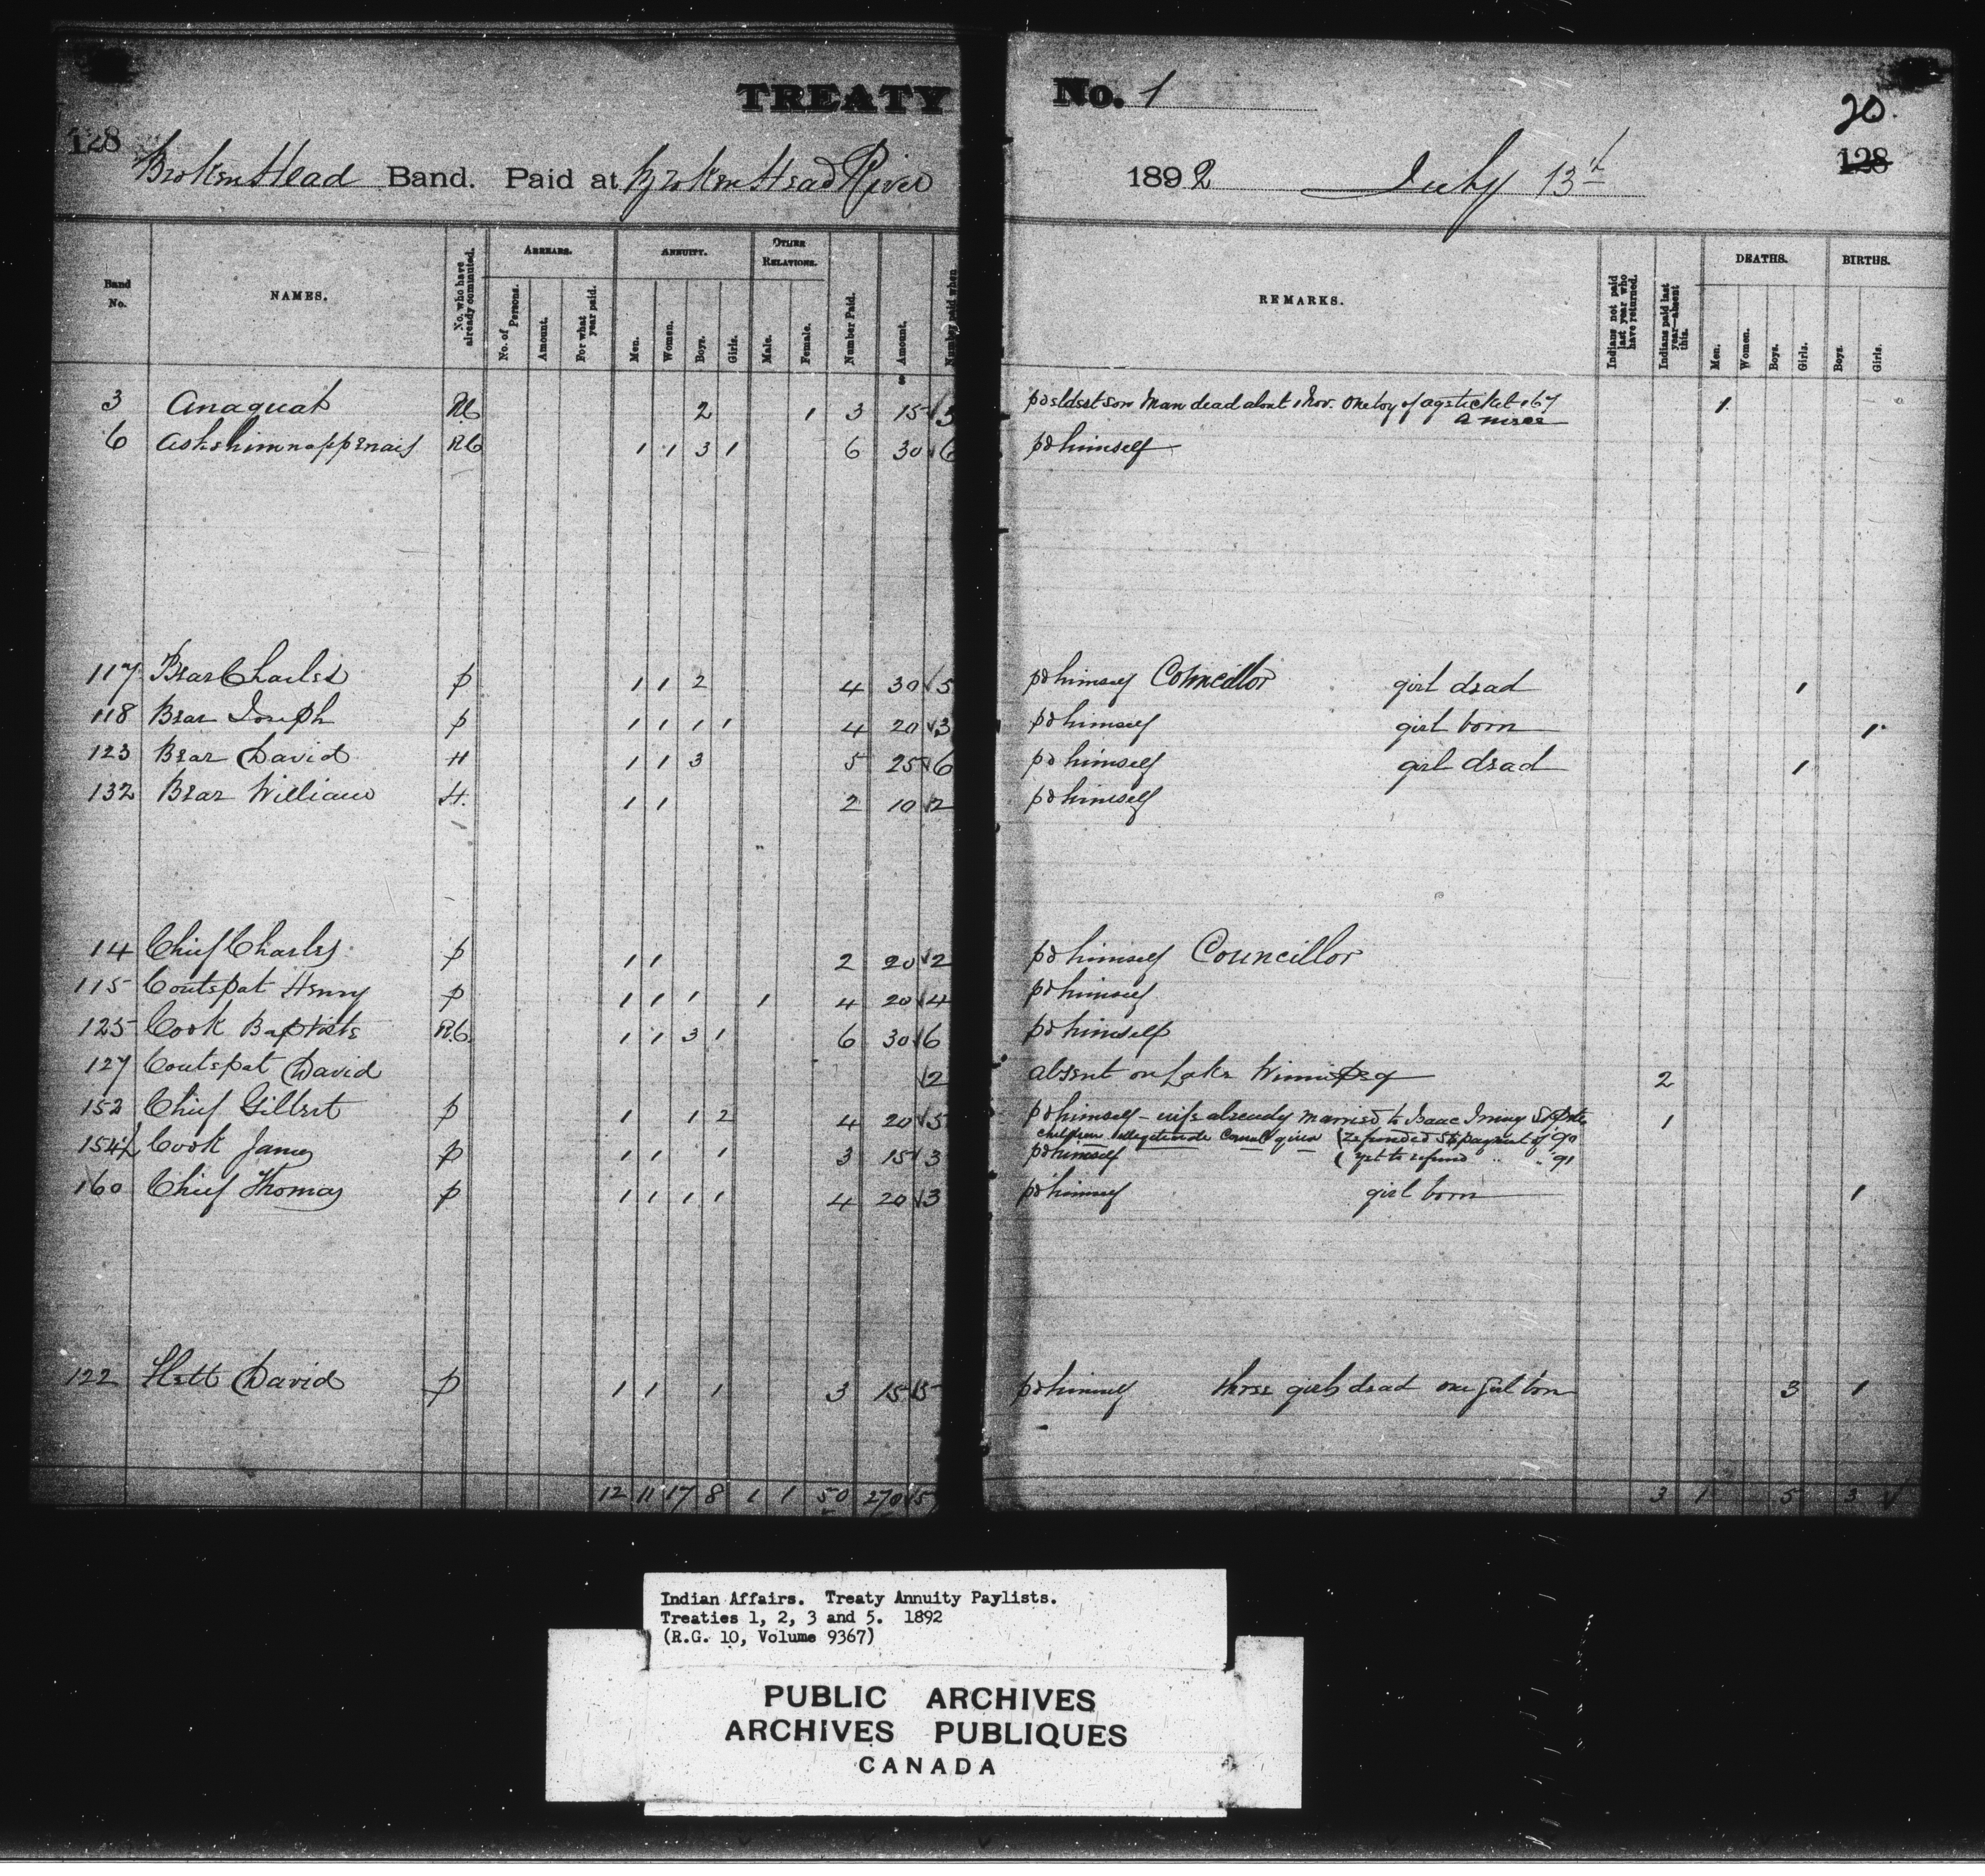 TREATY No. 1
20.
128 128
Broken Head Band. Paid at Broken Head River 1892 July 13th
Band No. NAMES. No. who have already commuted. ARREARS. No. of Persons. Amount. For what year paid. ANNUITY. Men. Women. Boys. Girls. OTHER RELATIONS. Male. Female. Number Paid. Amount. Number paid when REMARKS. Indians not paid last year who have returned. Indians paid last year—absent this. DEATHS. Men. Women. Boys. Girls. BIRTHS. Boys. Girls.
$
3 Anaquat RC 2 1 3 15 √3 pd eldest son Man dead about Nov. One boy of age ticket 167 1
a niece
6 RC 1 1 3 1 6 30 √6 pd himself
117 Bear Charles p 1 1 2 4 30 √5 pd himself Councillor girl dead 1
118 Bear Joseph p 1 1 1 1 4 20 √3 pd himself girl born 1
123 Bear David H 1 1 3 5 25 √6 pd himself girl dead 1
132 Bear William H. 1 1 2 10 √2 pd himself
14 Chief Charles p 1 1 2 20 √2 pd himself Councillor
115 Coutepat Henry p 1 1 1 1 4 20 √4 pd himself
125 Cook Baptiste R.C. 1 1 3 1 6 30 √6 pd himself
127 Coutepat David √2 absent on Lake Winnipeg 2
152 Chief Gilbert p 1 1 2 4 20 √5 pd himself – wife already married to Isaac St Peters 1
children illegitimate Consent given (refunded $5 payment of '90
154 Cook James p 1 1 1 3 15 √3 pd himself ( yet to refund " " '91
160 Chief Thomas p 1 1 1 1 4 20 √3 pd himself girl born 1
122 Flett David p 1 1 1 3 15 √5 pd himself three girls dead one girl born 3 1
12 11 17 8 1 1 50 270 √5 3 1 5 3 √
Indian Affairs. Treaty Annuity Paylists.
Treaties 1, 2, 3 and 5. 1892
(R.G. 10, Volume 9367)
PUBLIC ARCHIVES
ARCHIVES PUBLIQUES
CANADA